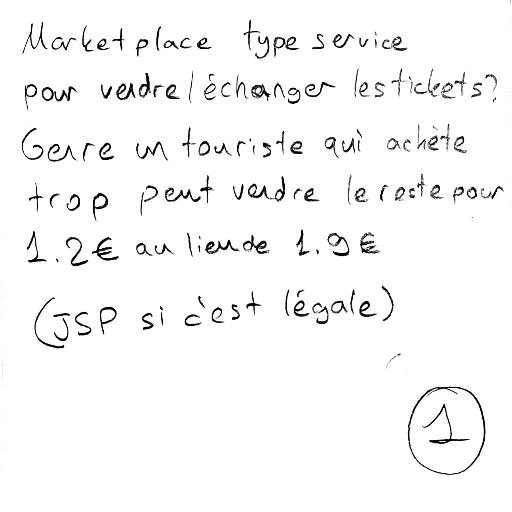 Marketplace type service
pour vendre/échanger les tickets?
Genre un touriste qui achète
trop peut vendre le reste pour
1.2€ au lieu de 1.9€
(JSP si c'est légale)
1